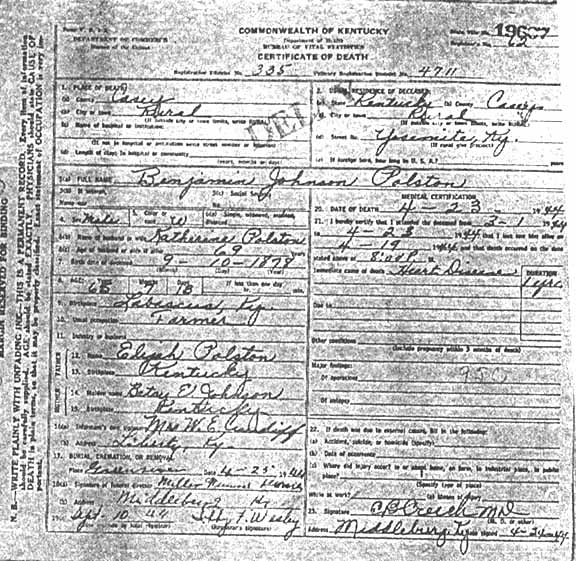 COMMONWEALTH OF KENTUCKY
DEPARTMENT OF COMMERCE
Department of Health
Bureau of the Census
BUREAU OF VITAL STATISTICS
CERTIFICATE OF DEATH
Registration District No. 335 Primary Registration District No. 4711
1. PLACE OF DEATH
(a) County Casey
(b) City or town Rural
(c) Name of hospital or institution:
(If not in hospital or institution write street number or location)
(d) Length of stay: In hospital or community
(years, months or days)
2. USUAL RESIDENCE OF DECEASED:
(a) State Kentucky (b) County Casey
(c) City or town Rural
(d) Street No. Yosemite, Ky.
(If rural give precinct)
(e) If foreign born, how long in U. S. A.? years
3(a) FULL NAME Benjamin Johnson Polston
3(b) If veteran, 3(c) Social Security
name war No.
4. Sex Male 5. Color or race W 6(a) Single, widowed, married, divorced
6(b) Name of husband or wife Katherine Polston
6(c) Age of husband or wife if alive 69 years
7. Birth date of deceased 9-10-1878
(Month) (Day) (Year)
8. AGE: Years 65 Months Days If less than one day
9. Birthplace Labascus, Ky.
10. Usual occupation Farmer
11. Industry or business
FATHER
12. Name Elijah Polston
13. Birthplace Kentucky
MOTHER
14. Maiden name Betsy E. Johnson
15. Birthplace Kentucky
16(a) Informant's own signature Mrs W. E. Cundiff
(b) Address Liberty, Ky.
17. BURIAL, CREMATION, OR REMOVAL
Place Date 4-25-1944
18(a) Signature of funeral director
(b) Address Middleburg Ky
Wesley
(Registrar's signature)
MEDICAL CERTIFICATION
20. DATE OF DEATH 4-23 1944
21. I hereby certify that I attended the deceased from 3-1 1944
to 4-23 1944 that I last saw him alive on
4-19 1944, and that death occurred on the date
stated above at 8:00 P. m.
Immediate cause of death Heart Disease
DURATION
1 yr.
Due to
Other conditions
(Include pregnancy within 3 months of death)
Major findings:
Of operations 95C
Of autopsy
22. If death was due to external causes, fill in the following:
(a) Accident, suicide, or homicide (Specify)
(b) Date of occurrence
(c) Where did injury occur? In or about home, on farm, in industrial place, in public
place?
(Specify type of place)
While at work? (e) Means of injury
23. Signature C B Creech M D
(M. D. or other)
Address Middleburg Ky Date signed 4-24-44
MARGIN RESERVED FOR BINDING
N. B.—WRITE PLAINLY WITH UNFADING INK—THIS IS A PERMANENT RECORD. Every item of information
should be carefully supplied. AGE should be stated EXACTLY. PHYSICIANS should state CAUSE OF
DEATH in plain terms, so that it may be properly classified. Exact statement of OCCUPATION is very im-